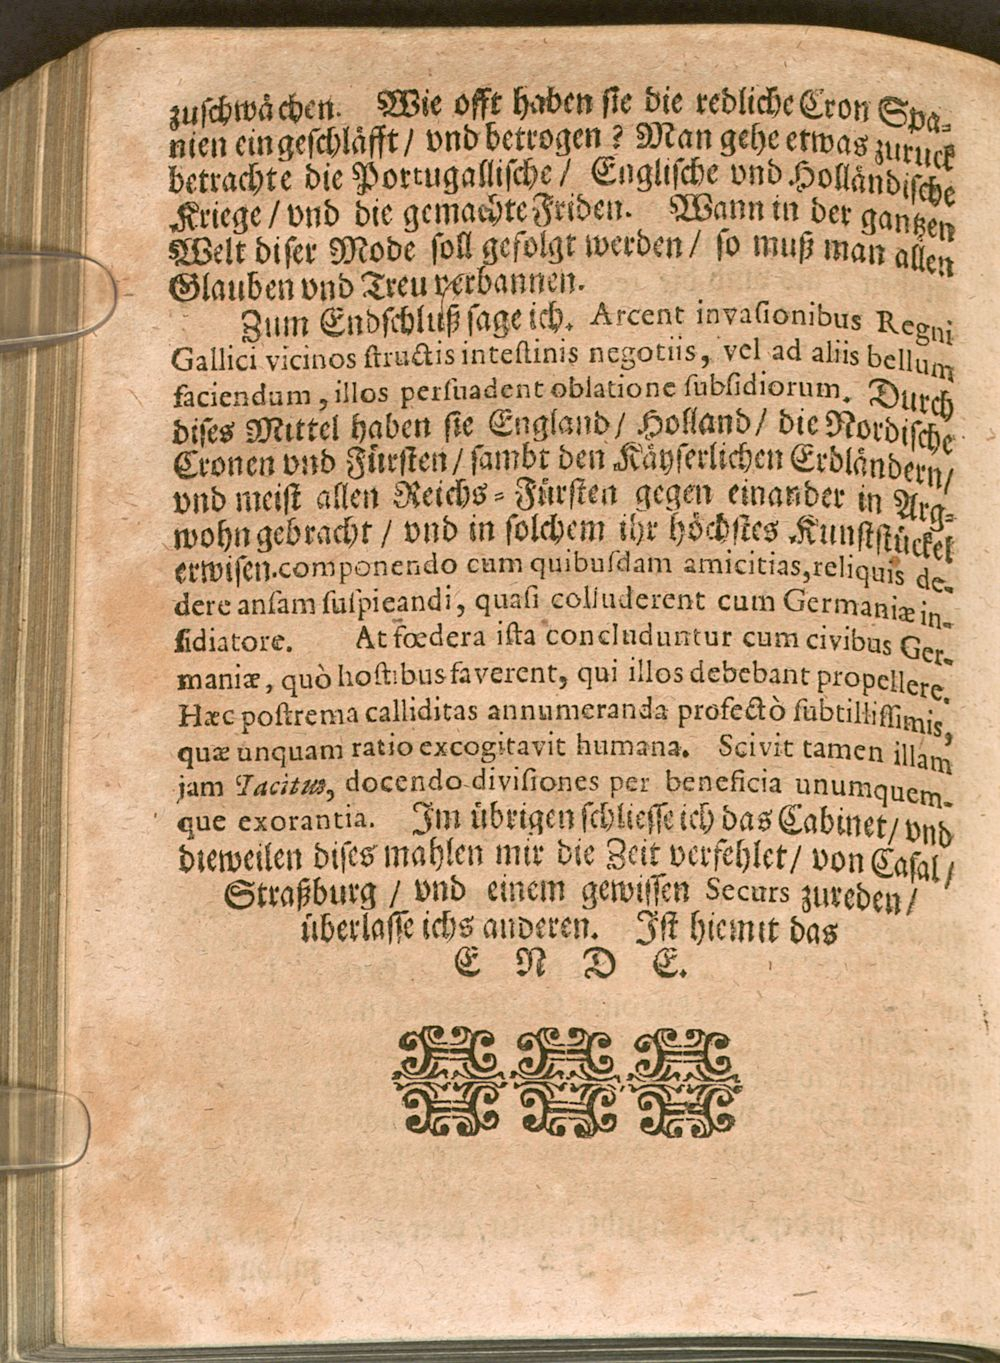 zuschwächen. Wie offt haben sie die redliche Cron Spa-
nien eingeschläfft / vnd betrogen? Man gehe etwas zuruck
betrachte die Portugallische / Englische vnd Holländische
Kriege / vnd die gemachte Friden. Wann in der gantzen
Welt diser Mode soll gefolgt werden / so muß man allen
Glauben vnd Treu verbannen.
Zum Endschluß sage ich. Arcent invasionibus Regni
Gallici vicinos structis intestinis negotiis, vel ad aliis bellum
faciendum, illos persuadent oblatione subsidiorum. Durch
dises Mittel haben sie England / Holland / die Nordische
Cronen vnd Fürsten / sambt den Käyserlichen Erbländern /
vnd meist allen Reichs-Fürsten gegen einander in Arg-
wohn gebracht / vnd in solchem ihr höchstes Kunststückel
erwisen. componendo cum quibusdam amicitias, reliquis de-
dere ansam suspieandi, quasi colluderent cum Germaniæ in-
sidiatore. At fœdera ista concluduntur cum civibus Ger-
maniæ, quò hostibus faverent, qui illos debebant propellere.
Hæc postrema calliditas annumeranda profectò subtillissimis,
quæ unquam ratio excogitavit humana. Scivit tamen illam
jam Tacitus, docendo divisiones per beneficia unumquem-
que exorantia. Im übrigen schliesse ich das Cabinet / vnd
dieweilen dises mahlen mir die Zeit verfehlet / von Casal /
Straßburg / vnd einem gewissen Securs zureden /
überlasse ichs anderen. Ist hiemit das
E N D E.